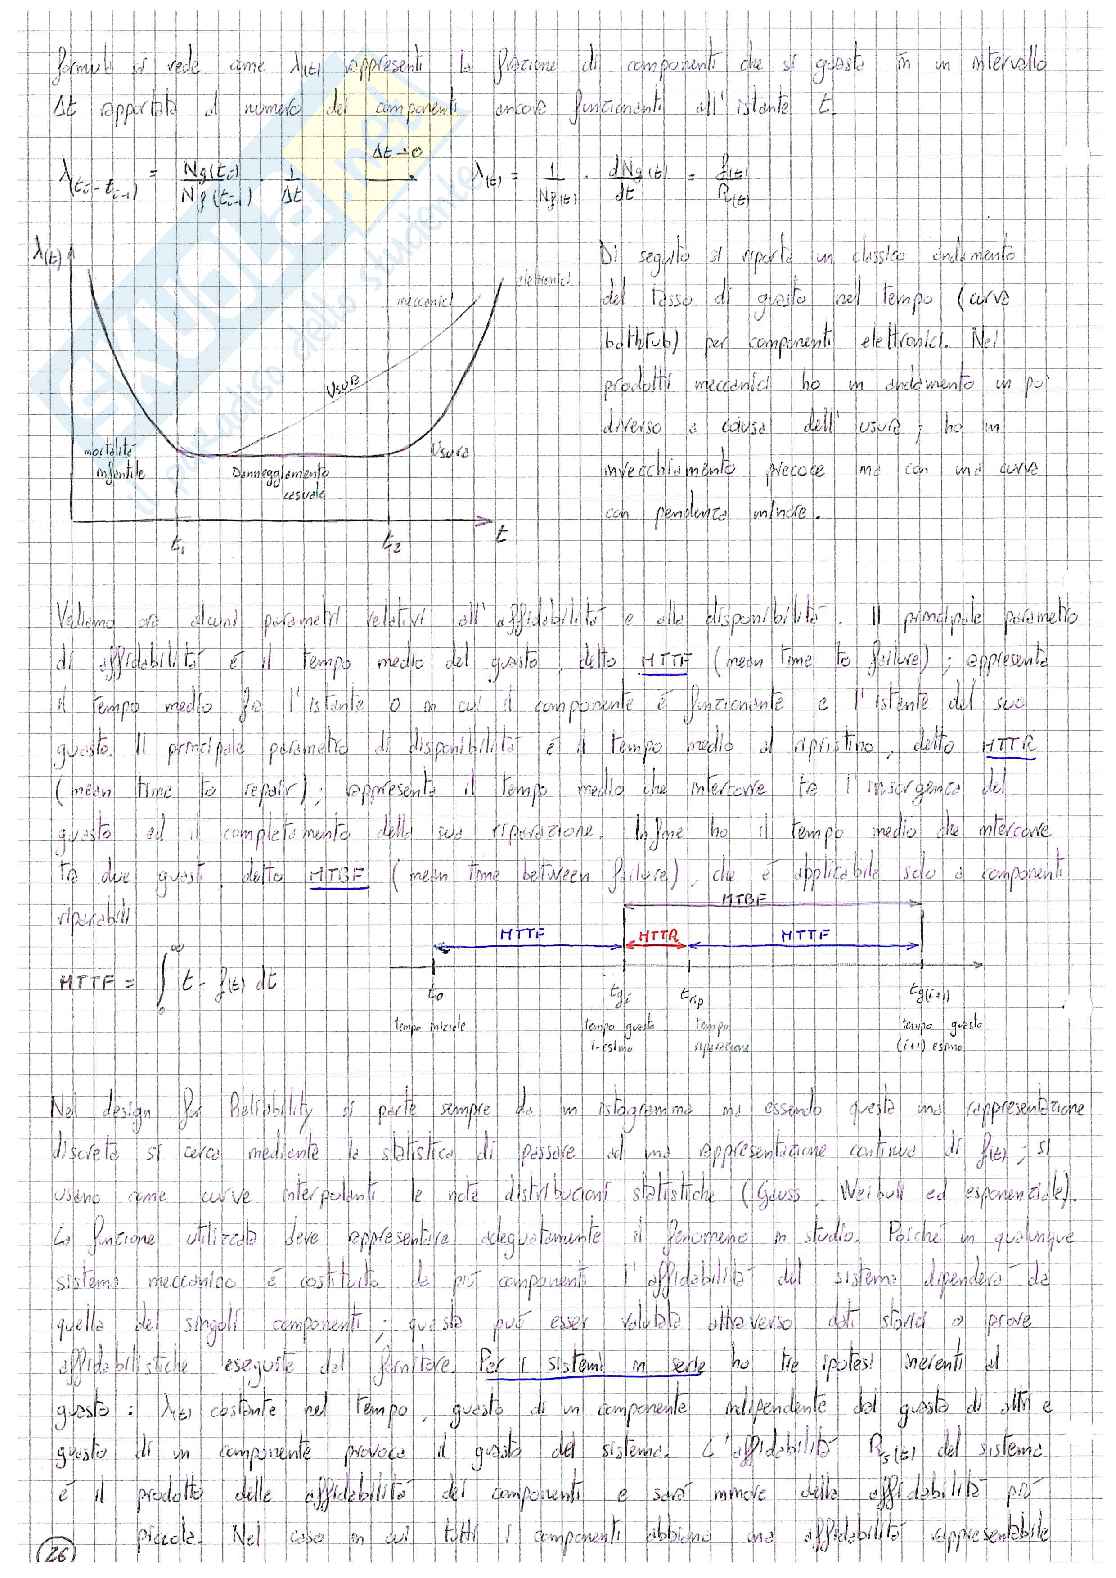 formuli si vede come λ(t) rappresenti la frazione di componenti che si guasta in un intervallo
Δt rapportata al numero dei componenti ancora funzionanti all'istante t.
Δt→0
λ(ti - ti-1) = Ng(ti) / Nf(ti-1) · 1/Δt → λ(t) = 1/Nf(t) · dNg(t)/dt = f(t)/R(t)
λ(t)
meccanici
elettronici
Usura
mortalità
infantile
Danneggiamento
casuale
Usura
t1
t2
t
Di seguito si riporta un classico andamento
del tasso di guasto nel tempo (curva
bathtub) per componenti elettronici. Nei
prodotti meccanici ho un andamento un po'
diverso a causa dell'usura; ho un
invecchiamento precoce ma con una curva
con pendenza minore.
Vediamo ora alcuni parametri relativi all'affidabilità e alla disponibilità. Il principale parametro
di affidabilità è il tempo medio del guasto, detto MTTF (mean time to failure); rappresenta
il tempo medio fra l'istante 0 in cui il componente è funzionante e l'istante del suo
guasto. Il principale parametro di disponibilità è il tempo medio al ripristino, detto MTTR
(mean time to repair); rappresenta il tempo medio che intercorre tra l'insorgenza del
guasto ed il completamento della sua riparazione. Infine ho il tempo medio che intercorre
tra due guasti, detto MTBF (mean time between failure), che è applicabile solo a componenti
riparabili
MTBF
MTTF
MTTR
MTTF
MTTF = ∫0∞ t - f(t) dt
t0
tgi
trip
tg(i+1)
tempo iniziale
tempo guasto
i-esimo
tempo
riparazione
tempo guasto
(i+1) esimo
Nel design for Reliability si parte sempre da un istogramma ma essendo questa una rappresentazione
discreta si cerca mediante la statistica di passare ad una rappresentazione continua di f(t); si
usano come curve interpolanti le note distribuzioni statistiche (Gauss, Weibull ed esponenziale).
La funzione utilizzata deve rappresentare adeguatamente il fenomeno in studio. Poiché un qualunque
sistema meccanico è costituito da più componenti l'affidabilità del sistema dipenderà da
quella dei singoli componenti; questa può esser valutata attraverso dati storici o prove
affidabilistiche eseguite dal fornitore. Per i sistemi in serie ho tre ipotesi inerenti al
guasto: λ(t) costante nel tempo, guasto di un componente indipendente dal guasto di altri e
guasto di un componente provoca il guasto del sistema. L'affidabilità Rs(t) del sistema
è il prodotto delle affidabilità dei componenti e sarà minore della affidabilità più
piccola. Nel caso in cui tutti i componenti abbiano una affidabilità rappresentabile
26